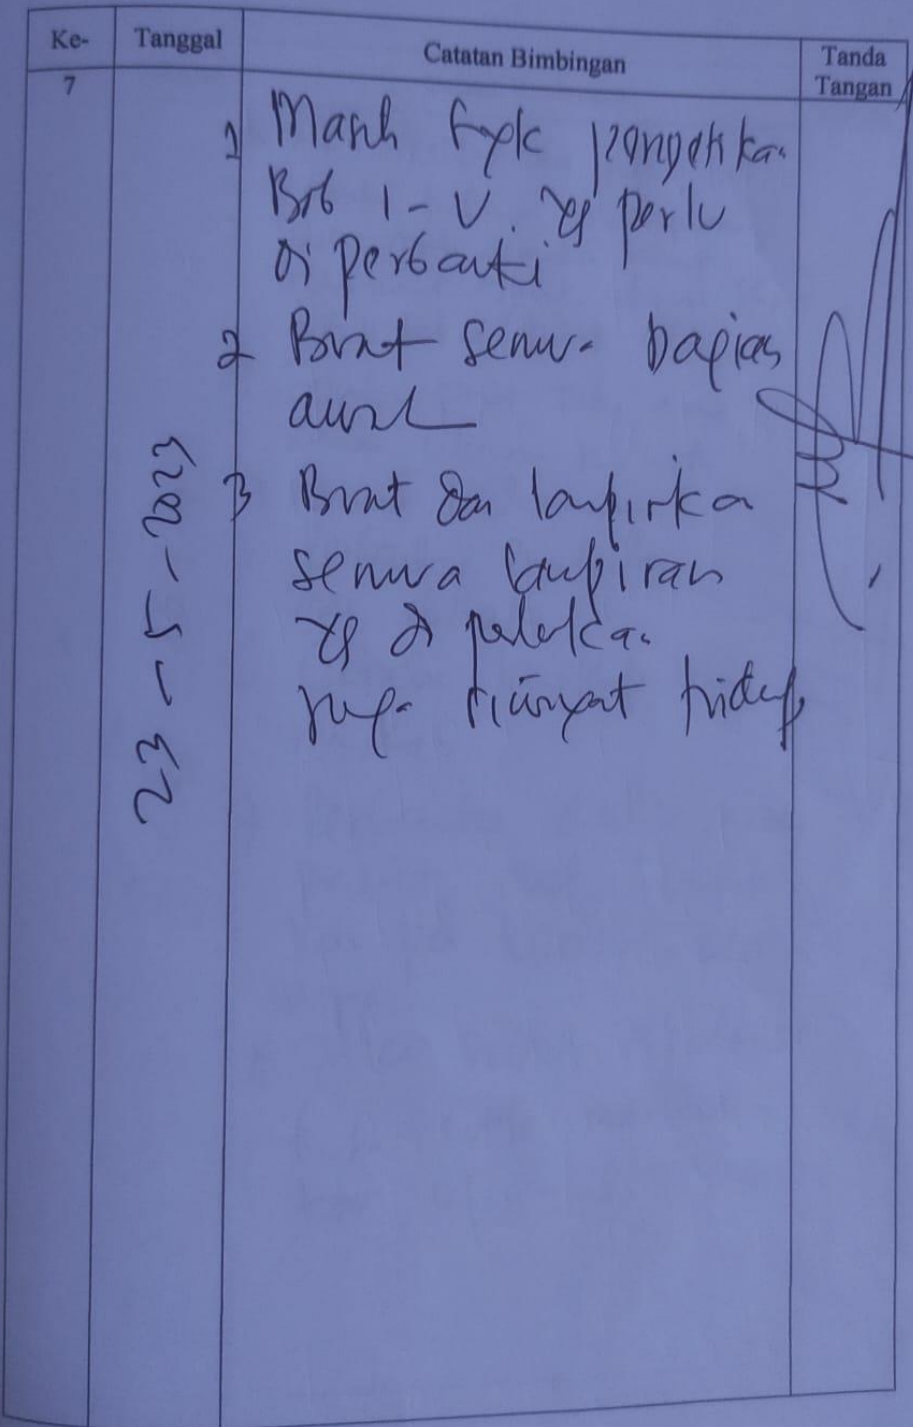 Ke- Tanggal Catatan Bimbingan Tanda Tangan
7
23-5-2023
1 Masih pengetikan
Bab I-V. yg perlu
diperbaiki
2 Buat semua bagian
awal
3 Buat dan lampirka
semua lampiran
yg di
juga riwayat hidup